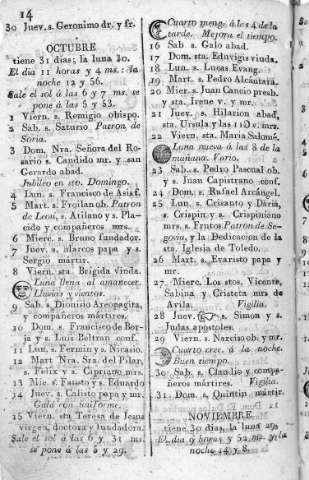 14
30 Juev. s. Geronimo dr. y fr.
OCTUBRE
tiene 31 dias; la luna 30.
El dia 11 horas y 4 ms.: la
noche 12 y 56.
Sale el sol á las 6 y 7 ms. se
pone á las 5 y 53.
1 Viern. s. Remigio obispo.
2 Sáb. s. Saturio Patron de
Soria.
3 Dom. Nra. Señora del Ro-
sario s. Candido mr. y san
Gerardo abad.
Jubileo en sto. Domingo.
4 Lun. s. Francisco de Asis f.
5 Mart. s. Froilan ob. Patron
de Leon, s. Atilano y s. Pla-
cido y compañeros mrs.
6 Mierc. s. Bruno fundador.
7 Juev. s. Marcos papa y s.
Sergio mártir.
8 Viern. sta. Brigida viuda.
Luna llena al amanecer.
Lluvias y vientos.
9 Sáb. s. Dionisio Areopagita,
y compañeros mártires.
10 Dom. s. Francisco de Bor-
ja y s. Luis Beltran conf.
11 Lun. s. Fermin y s. Nicasio.
12 Mart. Nra. Sra. del Pilar,
s. Felix y s. Cipriano mrs.
13 Mie. s. Fausto y s. Eduardo
14 Juev. s. Calisto papa y mr.
Gala con uniforme.
15 Viern. sta. Teresa de Jesus
virgen, doctora y fundadora.
Sale el sol á las 6 y 31 ms.
se pone á las 5 y 29.
Cuarto meng. á las 4 de la
tarde. Mejora el tiempo.
16 Sáb. s. Galo abad.
17 Dom. sta. Eduvigis viuda.
18 Lun. s. Lucas Evang.
19 Mart. s. Pedro Alcántara.
20 Mier. s. Juan Cancio presb.
y sta. Irene v. y mr.
21 Juev. s. Hilarion abad,
sta. Ursula y las 11 v. mrs.
22 Viern. sta. Maria Salomé.
Luna nueva á las 8 de la
mañana. Vario.
23 Sáb. s. Pedro Pascual ob.
y s. Juan Capistrano conf.
24 Dom. s. Rafael Arcángel.
25 Lun. s. Crisanto y Daria,
s. Crispin y s. Crispiniano
mrs. s. Frutos Patron de Se-
govia, y la Dedicacion de la
sta. Iglesia de Toledo.
26 Mart. s. Evaristo papa y
mr.
27 Mierc. Los stos. Vicente,
Sabina y Cristeta mrs. de
Avila. Vigilia.
28 Juev. s. Simon y s.
Judas apostoles.
29 Viern. s. Narciso ob. y mr.
Cuarto crec. á la noche.
Buen tiempo.
30 Sáb. s. Claudio y compa-
ñeros mártires. Vigilia.
31 Dom. s. Quintin mártir.
NOVIEMBRE
tiene 30 dias, la luna 29.
El dia 9 horas y 52 ms. y la
noche 14 y 8.